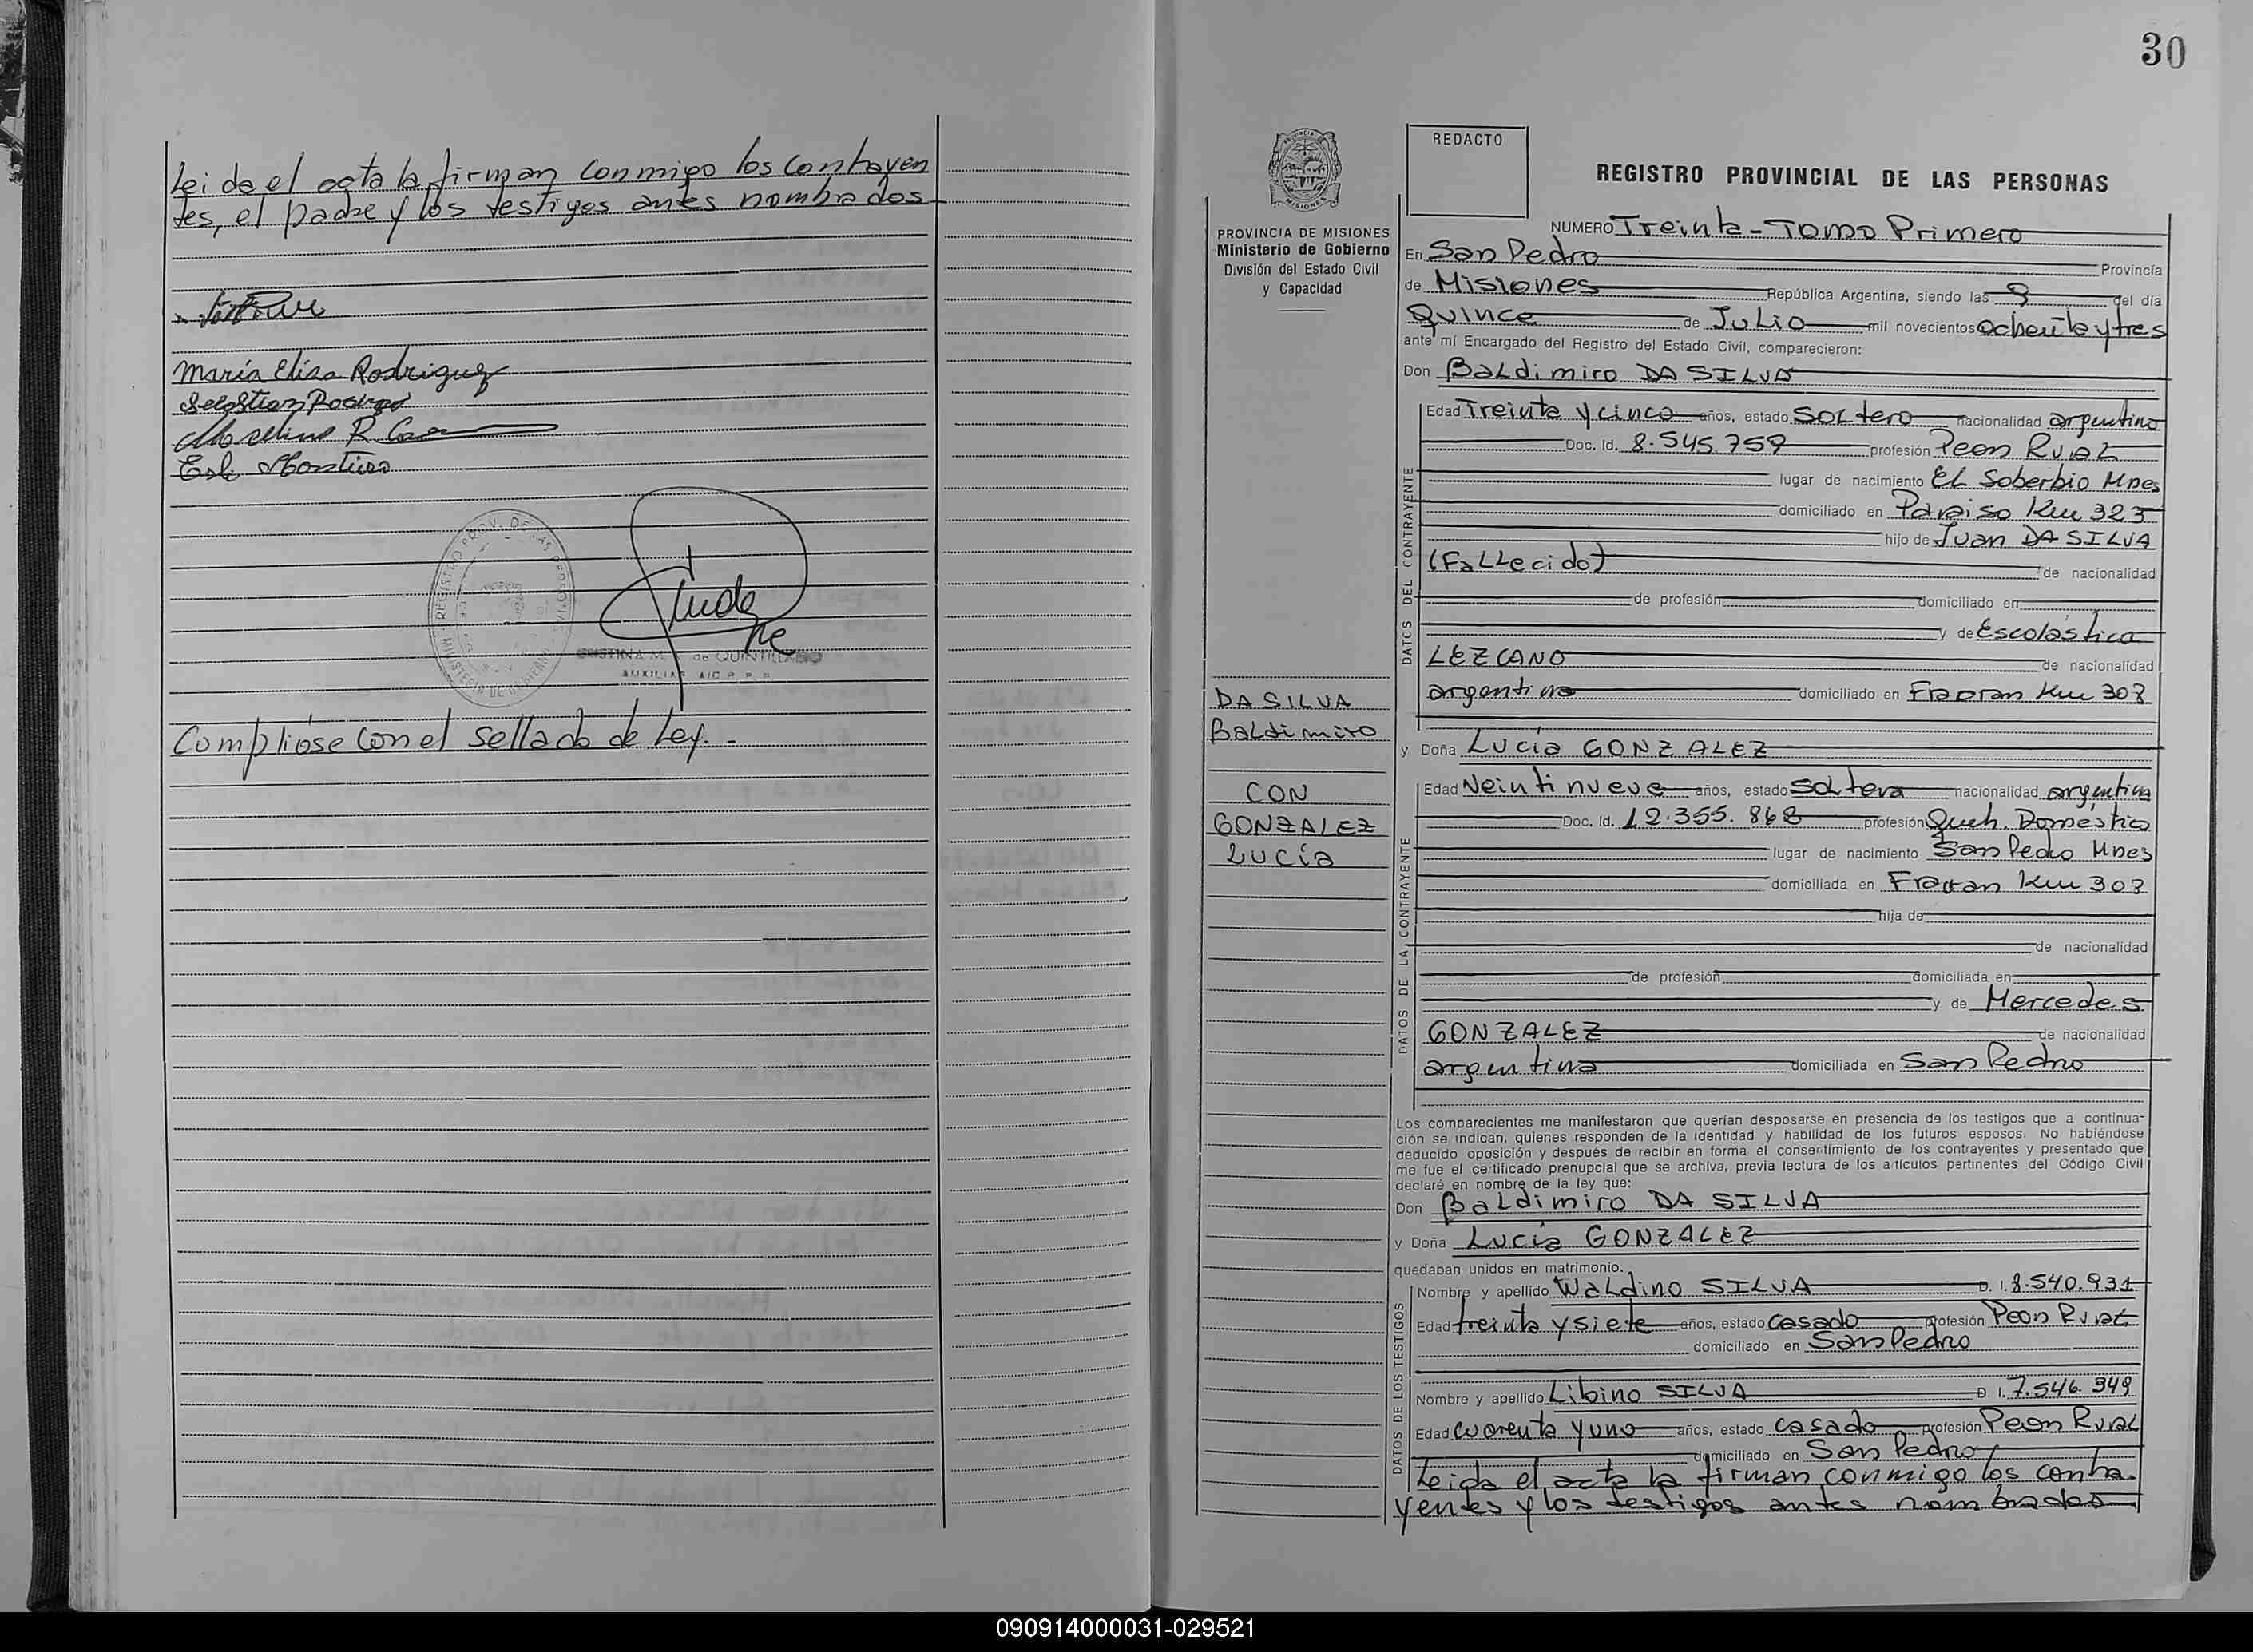 Leida el acta la firman conmigo los contrayen
tes, el padre y los testigos antes nombrados
María Elisa Rodriguez
Marcelino R.
REGISTRO PROV. DE LAS PERSONAS
MINISTERIO DE GOBIERNO
CRISTINA M. de QUINTILLANO
AUXILIAR A/C R. P. P.
Cumpliose con el sellado de Ley.-
30
PROVINCIA DE MISIONES
Ministerio de Gobierno
División del Estado Civil
y Capacidad
DA SILVA
Baldimiro
CON
GONZALEZ
Lucía
REDACTO
REGISTRO PROVINCIAL DE LAS PERSONAS
NUMERO Treinta - Tomo Primero
En San Pedro Provincia
de Misiones República Argentina, siendo las 9 del día
Quince de Julio mil novecientos ochenta y tres
ante mí Encargado del Registro del Estado Civil, comparecieron:
Don Baldimiro DA SILVA
DATOS DEL CONTRAYENTE
Edad Treinta y cinco años, estado soltero nacionalidad argentino
Doc. Id. 8.545.759 profesión Peon Rural
lugar de nacimiento El Soberbio Mnes
domiciliado en Paraiso Km 323
hijo de Juan DA SILVA
(Fallecido) de nacionalidad
de profesión domiciliado en
y de Escolástica
LEZCANO de nacionalidad
argentina domiciliado en Fracran Km 303
y Doña Lucía GONZALEZ
DATOS DE LA CONTRAYENTE
Edad Veintinueve años, estado soltera nacionalidad argentina
Doc. Id. 12.355.868 profesión Queh. Domestico
lugar de nacimiento San Pedro Mnes
domiciliada en Fracran Km 303
hija de
de nacionalidad
de profesión domiciliada en
y de Mercedes
GONZALEZ de nacionalidad
argentina domiciliada en San Pedro
Los comparecientes me manifestaron que querían desposarse en presencia de los testigos que a continua-
ción se indican, quienes responden de la identidad y habilidad de los futuros esposos. No habiéndose
deducido oposición y después de recibir en forma el consentimiento de los contrayentes y presentado que
me fue el certificado prenupcial que se archiva, previa lectura de los artículos pertinentes del Código Civil
declaré en nombre de la ley que:
Don Baldimiro DA SILVA
y Doña Lucía GONZALEZ
quedaban unidos en matrimonio.
DATOS DE LOS TESTIGOS
Nombre y apellido Waldino SILVA D. I. 8.540.931
Edad treinta y siete años, estado casado profesión Peon Rural
domiciliado en San Pedro
Nombre y apellido Libino SILVA D. I. 7.546.949
Edad cuarenta y uno años, estado casado profesión Peon Rural
domiciliado en San Pedro
Leida el acta la firman conmigo los contra.
yentes y los testigos antes nombrados
090914000031-029521